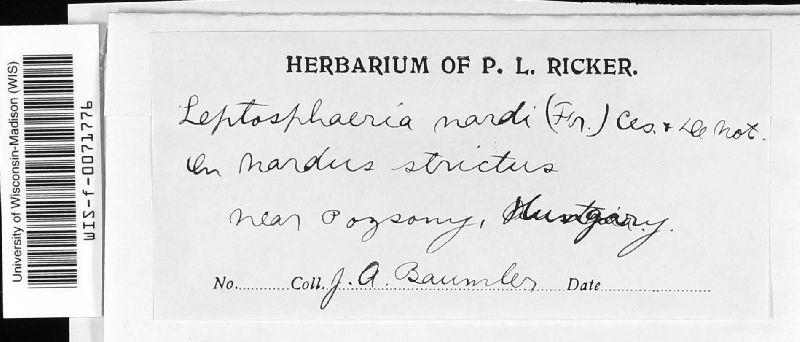 University of Wisconsin-Madison (WIS)
WIS-f-0071776
HERBARIUM OF P. L. RICKER.
Leptosphaeria nardi (Fr.) Ces. & De Not.
On Nardus strictus
near Pozsony, Hungary.
No.......... Coll. J. A. Baumler Date....................